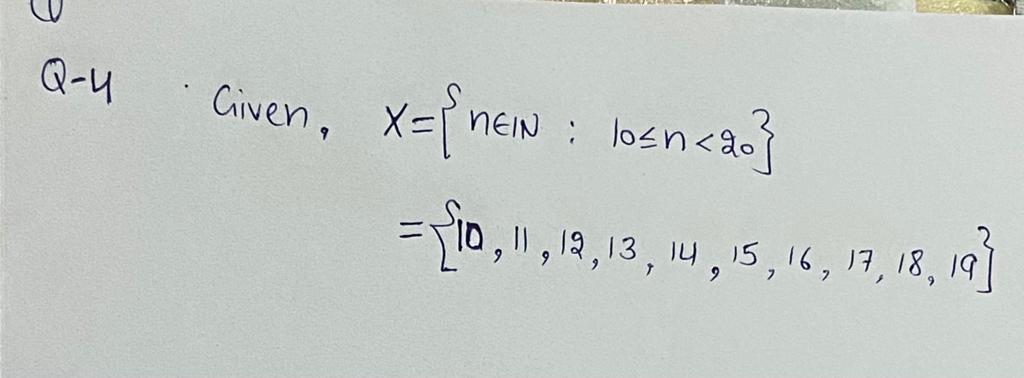 Q-4 Given, X={n∈IN : 10≤n<20}
={10, 11, 12, 13, 14, 15, 16, 17, 18, 19}